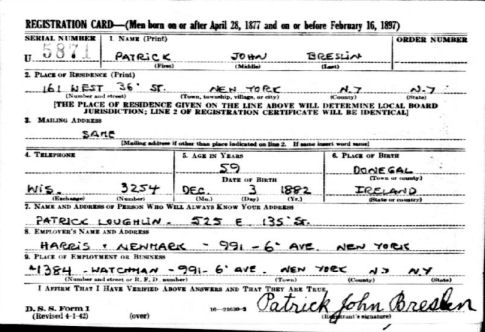 REGISTRATION CARD—(Men born on or after April 28, 1877 and on or before February 16, 1897)
SERIAL NUMBER 1. NAME (Print) ORDER NUMBER
U 5871 PATRICK JOHN BRESLIN
(First) (Middle) (Last)
2. PLACE OF RESIDENCE (Print)
161 WEST 36 ST. NEW YORK N.Y N.Y
(Number and street) (Town, township, village, or city) (County) (State)
[THE PLACE OF RESIDENCE GIVEN ON THE LINE ABOVE WILL DETERMINE LOCAL BOARD
JURISDICTION; LINE 2 OF REGISTRATION CERTIFICATE WILL BE IDENTICAL]
3. MAILING ADDRESS
SAME
[Mailing address if other than place indicated on line 2. If same insert word same]
4. TELEPHONE 5. AGE IN YEARS 6. PLACE OF BIRTH
59 DONEGAL
DATE OF BIRTH (Town or county)
WIS. 3254 DEC. 3 1882 IRELAND
(Exchange) (Number) (Mo.) (Day) (Yr.) (State or country)
7. NAME AND ADDRESS OF PERSON WHO WILL ALWAYS KNOW YOUR ADDRESS
PATRICK LOUGHLIN. 525 E 135 St.
8. EMPLOYER'S NAME AND ADDRESS
HARRIS + NENMARK - 991 - 6 AVE. NEW YORK
9. PLACE OF EMPLOYMENT OR BUSINESS
1384 - WATCHMAN - 991 - 6 AVE. NEW YORK NY NY
(Number and street or R. F. D. number) (Town) (County) (State)
I AFFIRM THAT I HAVE VERIFIED ABOVE ANSWERS AND THAT THEY ARE TRUE.
D. S. S. Form 1 Patrick John Breslin
(Revised 4-1-42) (over) (Registrant's signature)